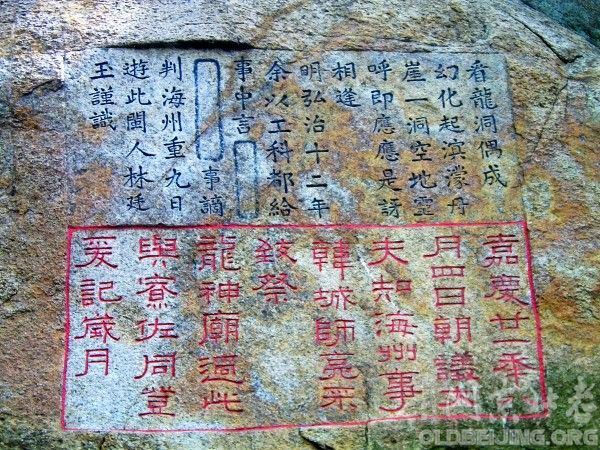 看龍洞偶成
幻化起溟濛丹
崖一洞空地靈
呼即應應是訝
相逢
明弘治十二年
余以工科都給
事中言
事謫
判海州重九日
遊此閩人林廷
玉謹識
嘉慶廿一秊八
月四日朝議大
夫知海州事
韓城師亮采
致祭
龍神廟過此
與寮佐同登
爰記歲月
OLDBEIJING.ORG